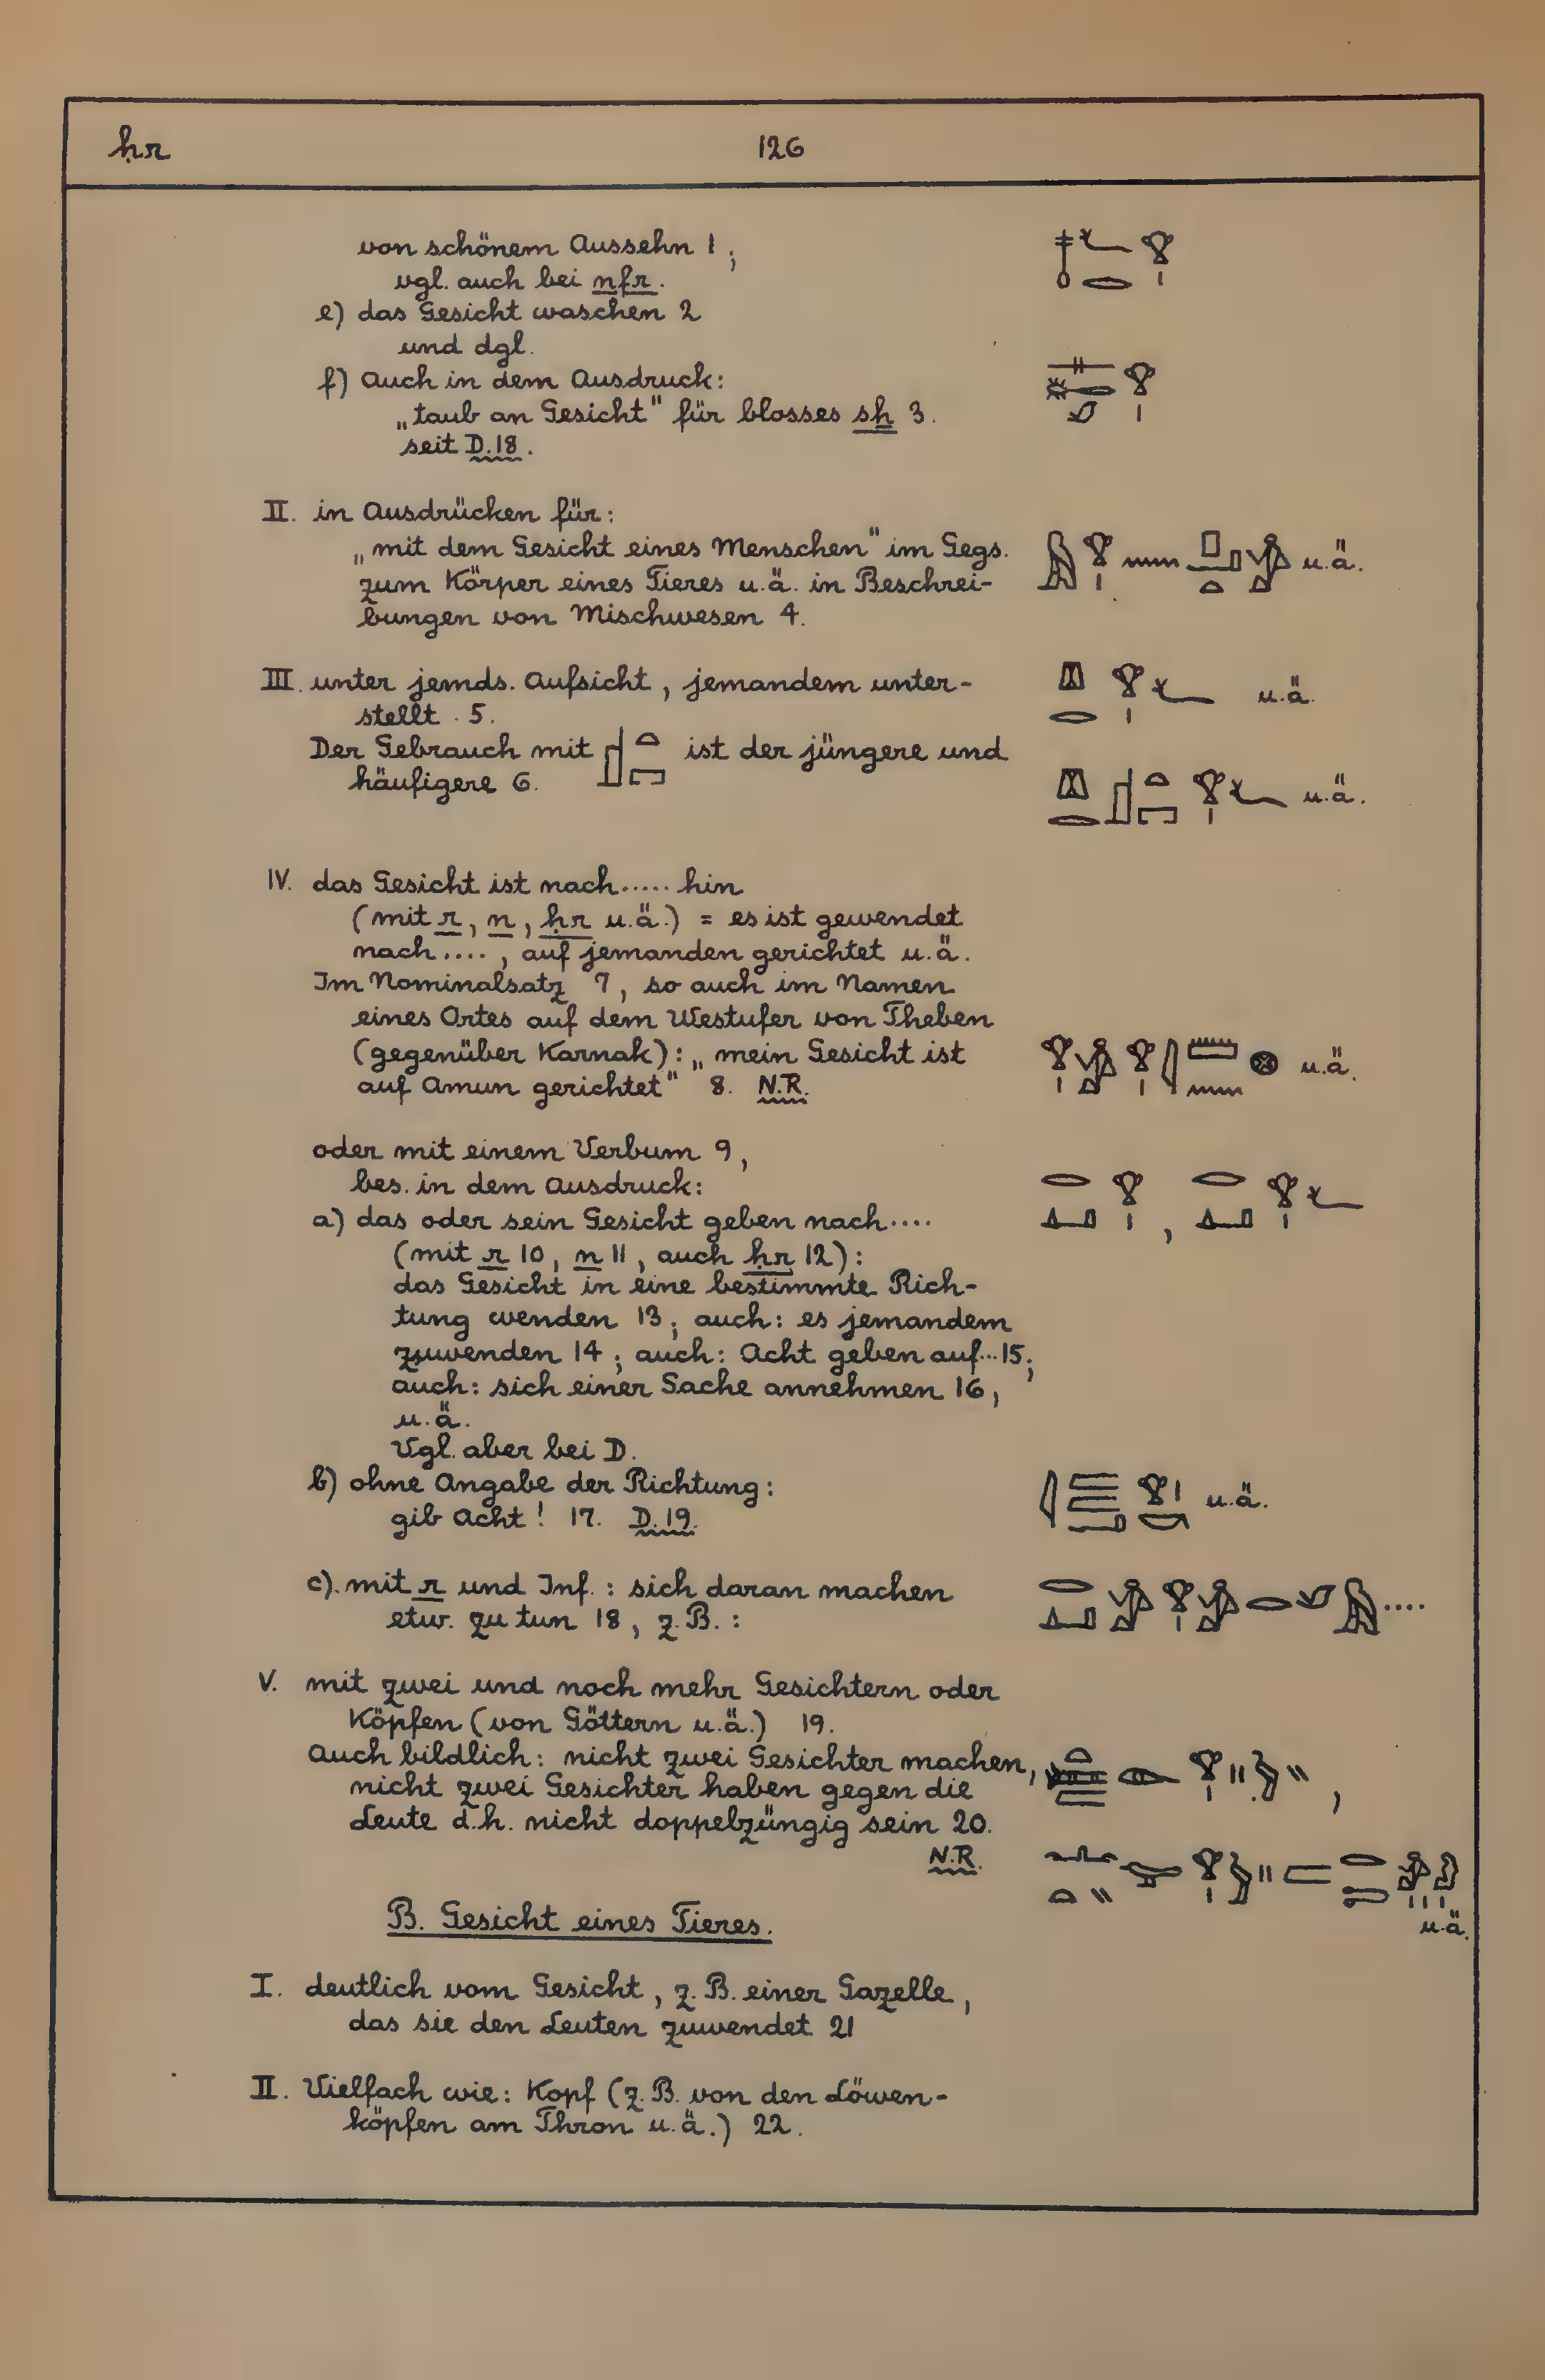 ḥr
126
von schönem Aussehn 1 ;
vgl. auch bei nfr.
e) das Gesicht waschen 2
und dgl.
f) Auch in dem Ausdruck:
„taub an Gesicht" für blosses sh 3.
seit D.18.
II. in Ausdrücken für:
„mit dem Gesicht eines Menschen" im Gegs.
u.ä.
zum Körper eines Tieres u.ä. in Beschrei-
bungen von Mischwesen 4.
III. unter jemds. Aufsicht, jemandem unter-
u.ä.
stellt 5.
Der Gebrauch mit ist der jüngere und
häufigere 6.
u.ä.
IV. das Gesicht ist nach..... hin
(mit r, n, ḥr u.ä.) = es ist gewendet
nach...., auf jemanden gerichtet u.ä.
Im Nominalsatz 7, so auch im Namen
eines Ortes auf dem Westufer von Theben
(gegenüber Karnak): „mein Gesicht ist
u.ä.
auf Amun gerichtet" 8. N.R.
oder mit einem Verbum 9,
bes. in dem Ausdruck:
a) das oder sein Gesicht geben nach....
(mit r 10, n 11, auch ḥr 12):
das Gesicht in eine bestimmte Rich-
tung wenden 13; auch: es jemandem
zuwenden 14; auch: Acht geben auf...15;
auch: sich einer Sache annehmen 16,
u.ä.
Vgl. aber bei D.
b) ohne Angabe der Richtung:
u.ä.
gib Acht! 17. D.19.
c). mit r und Inf.: sich daran machen
....
etw. zu tun 18, z.B.:
V. mit zwei und noch mehr Gesichtern oder
Köpfen (von Göttern u.ä.) 19.
Auch bildlich: nicht zwei Gesichter machen,
nicht zwei Gesichter haben gegen die
Leute d.h. nicht doppelzüngig sein 20.
N.R.
u.ä.
B. Gesicht eines Tieres.
I. deutlich vom Gesicht, z.B. einer Gazelle,
das sie den Leuten zuwendet 21
II. Vielfach wie: Kopf (z.B. von den Löwen-
köpfen am Thron u.ä.) 22.